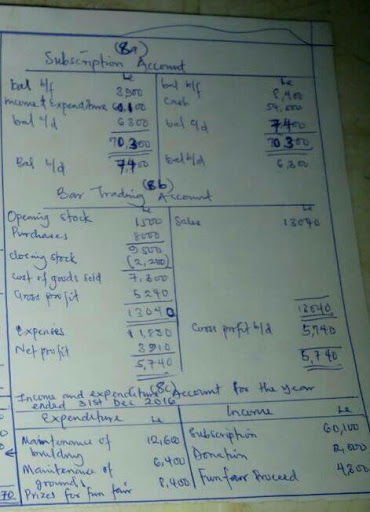 (8a)
Subscription Account
Le Le
bal b/f 3,900 bal b/f 8,400
Income & Expenditure 60,100 Cash 54,600
bal c/d 6300 bal c/d 7,400
70,300 70,300
Bal b/d 7,400 bal b/d 6,300
(8b)
Bar Trading Account
Le Le
Opening stock 1500 Sales 13040
Purchases 8000
9500
Closing stock (2,200)
Cost of goods sold 7,300
Gross profit 5740
13040 13040
Expenses 1,830 Gross profit b/d 5,740
Net profit 3910
5,740 5,740
(8c)
Income and expenditure Account for the year
ended 31st Dec 2016
Expenditure Le Income Le
Maintenance of 12,600 Subscription 60,100
building Donation
Maintenance of 6,400 Funfair Proceed 4,800
grounds
Prizes for fun fair 8,400
70